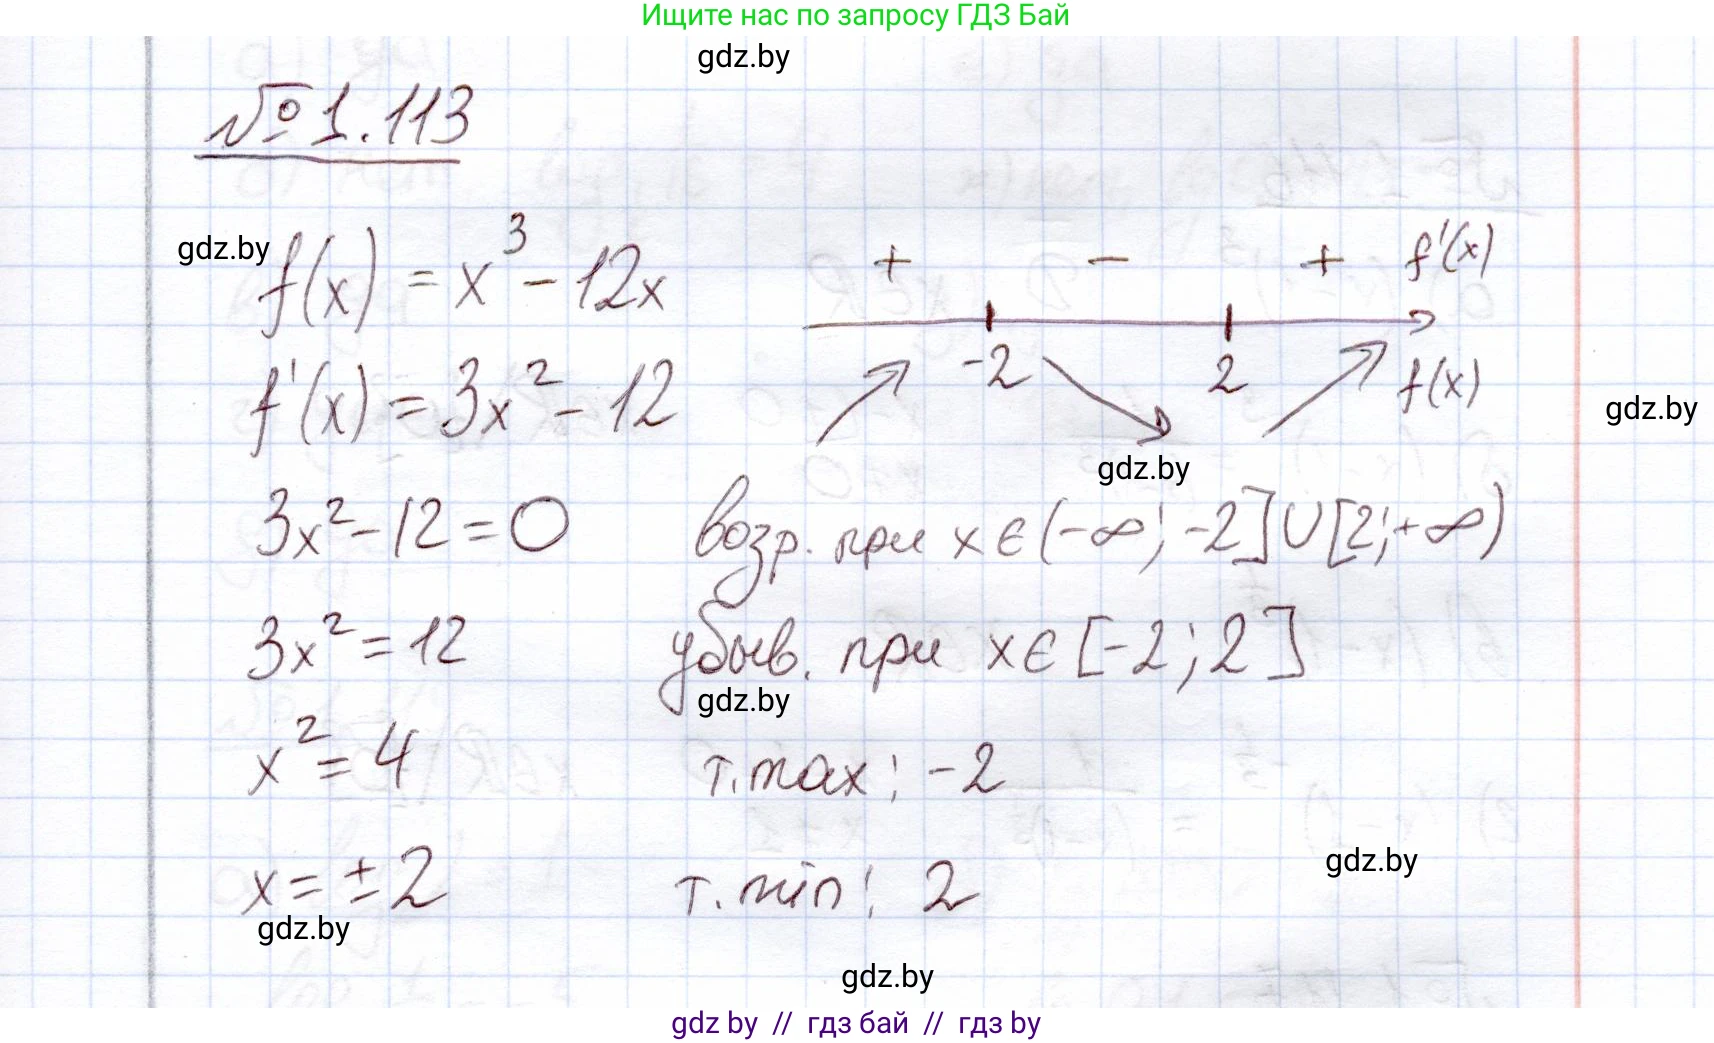 Ищите нас по запросу ГДЗ Бай
gdz.by
№ 1.113
gdz.by
f(x) = x³ - 12x
+ - + f'(x)
-2 2 f(x)
f'(x) = 3x² - 12
gdz.by
gdz.by
3x² - 12 = 0
возр. при x ∈ (-∞; -2] ∪ [2; +∞)
3x² = 12
убыв. при x ∈ [-2; 2]
gdz.by
x² = 4
т. max: -2
gdz.by
x = ± 2
т. min: 2
gdz.by
gdz.by
gdz by // гдз бай // гдз by